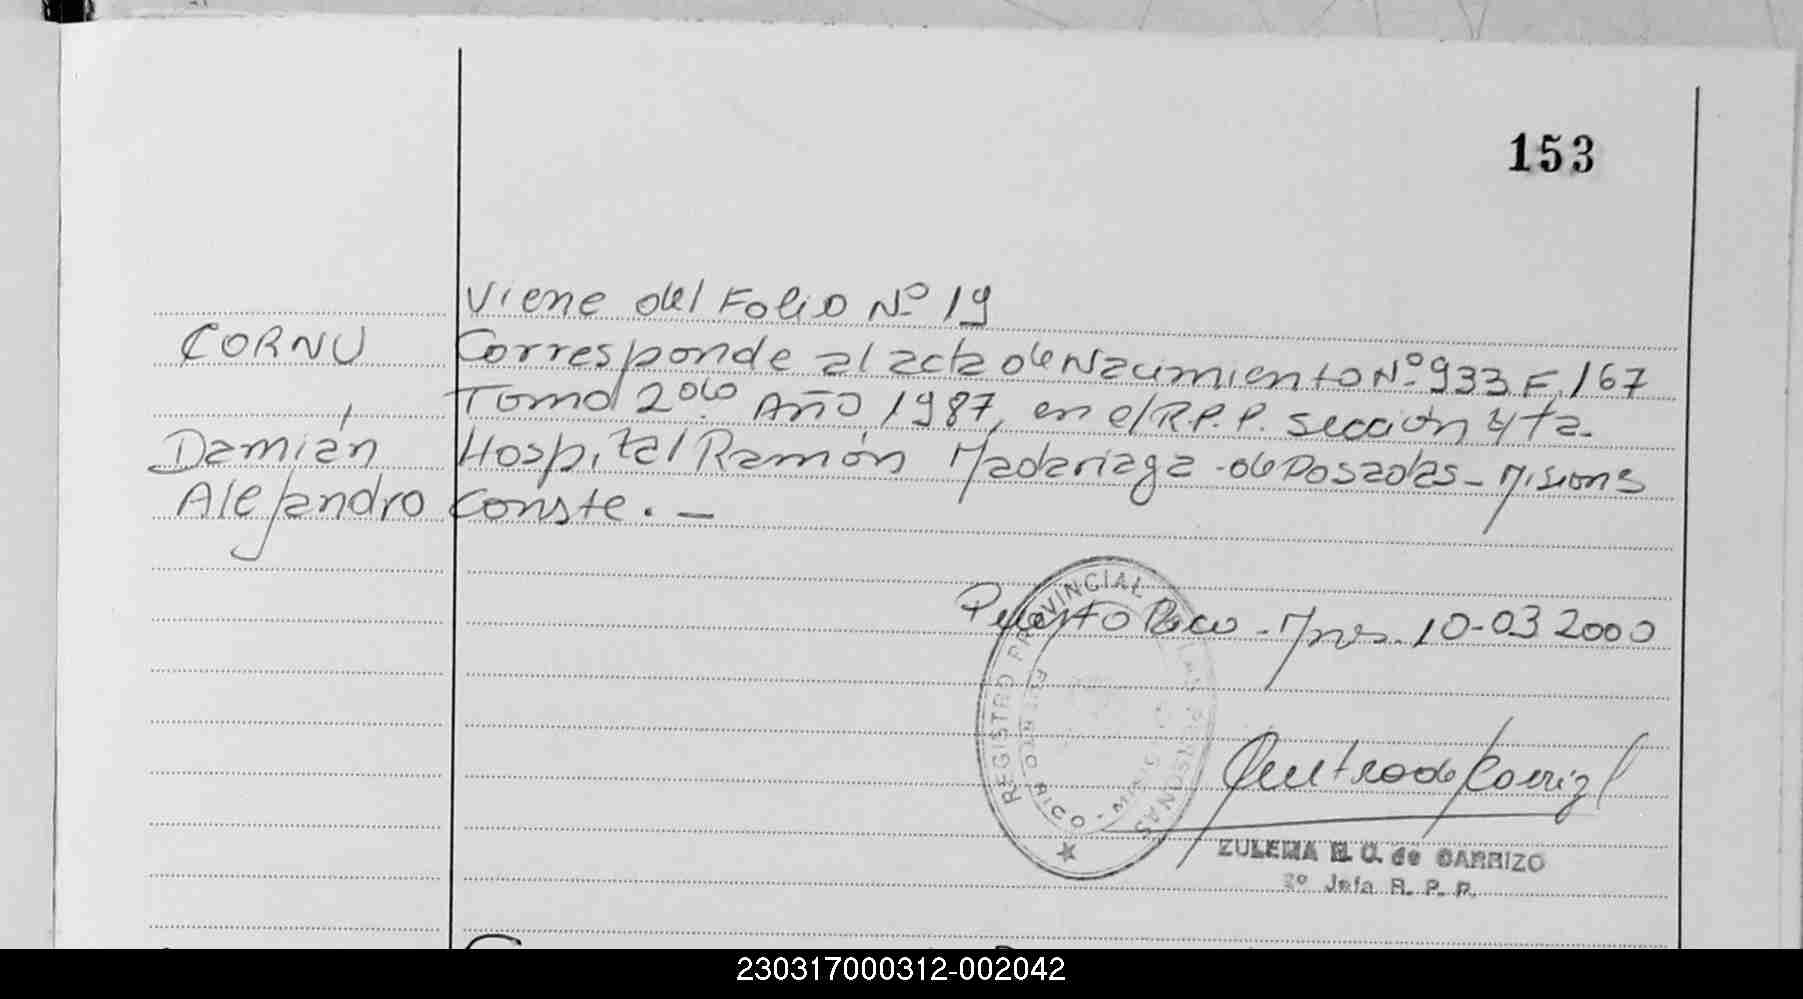 153
Viene del Folio Nº 19
CORNU
Corresponde al acta de Nacimiento Nº 933 F. 167
Tomo 2do Año 1987, en el R.P.P. sección 4ta.
Damián
Hospital Ramón Madariaga - de Posadas - Misiones
Alejandro
Conste. -
REGISTRO PROVINCIAL DE LAS PERSONAS
Puerto Rico - Mnes. 10-03 2000
ZULEMA de CARRIZO
2º Jefa R. P. P.
230317000312-002042